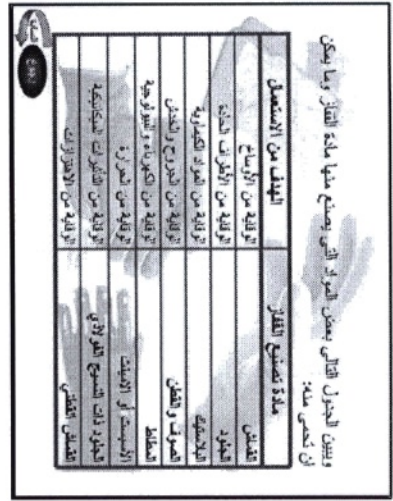 ويبين الجدول التالي بعض المواد التي يصنع منها مادة القفاز وما يمكن
ان تحمى منه:
مادة تصنيع القفاز	الهدف من الاستعمال
القماش	الوقاية من الأوساخ
الجلود	الوقاية من الأطراف الحادة
البلاستيك	الوقاية من المواد الكيماوية
الصوف والقطن	الوقاية من الجروح والخدش
المطاط	الوقاية من الكهرباء والبيولوجية
الاسبست أو الامينت	الوقاية من الحرارة
الجلود ذات النسيج الفولاذي	الوقاية من التأثيرات الميكانيكية
القماش القطني	الوقاية من الاهتزازات
رجوع